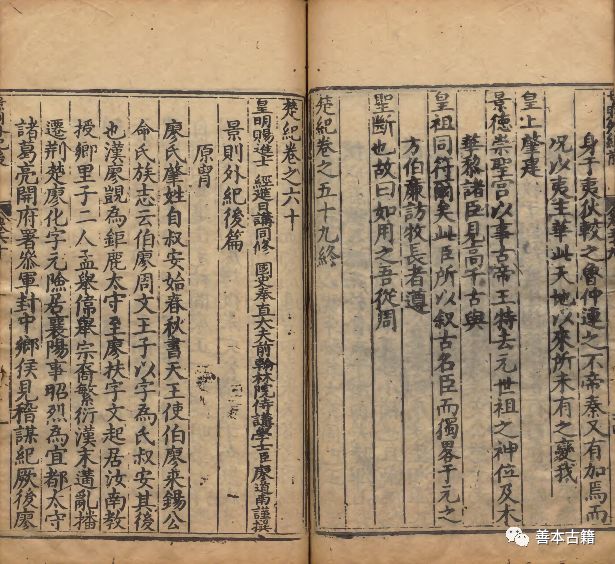 身于夷狄較之魯仲連之不帝秦又有加焉而
况以夷主華此天地以來所未有之變我
皇上肇建
景德崇聖宫以事古帝王特去元世祖之神位及木
華黎諸臣見高千古與
皇祖同符爾矣此臣所以叙古名臣而獨畧于元之
方伯廉訪牧長者遵
聖斷也故曰如用之吾從周
楚紀卷之五十九終
楚紀卷之六十
皇明賜進士 經筵日講同修 國史奉直大夫前翰林院侍講學士臣廖道南謹撰
景則外紀後篇
原胄
廖氏肇姓自叔安始春秋書天王使伯廖來錫公
命氏族志云伯廖周文王子以字為氏叔安其後
也漢廖覬為鉅鹿太守至廖扶字文起居汝南教
授鄉里子二人孟舉偉舉宗裔繁衍漢末遘亂播
遷荆楚廖化字元險居襄陽事昭烈為宜都太守
諸葛亮開府署叅軍封中鄉侯見稽謀紀厥後廖
善本古籍